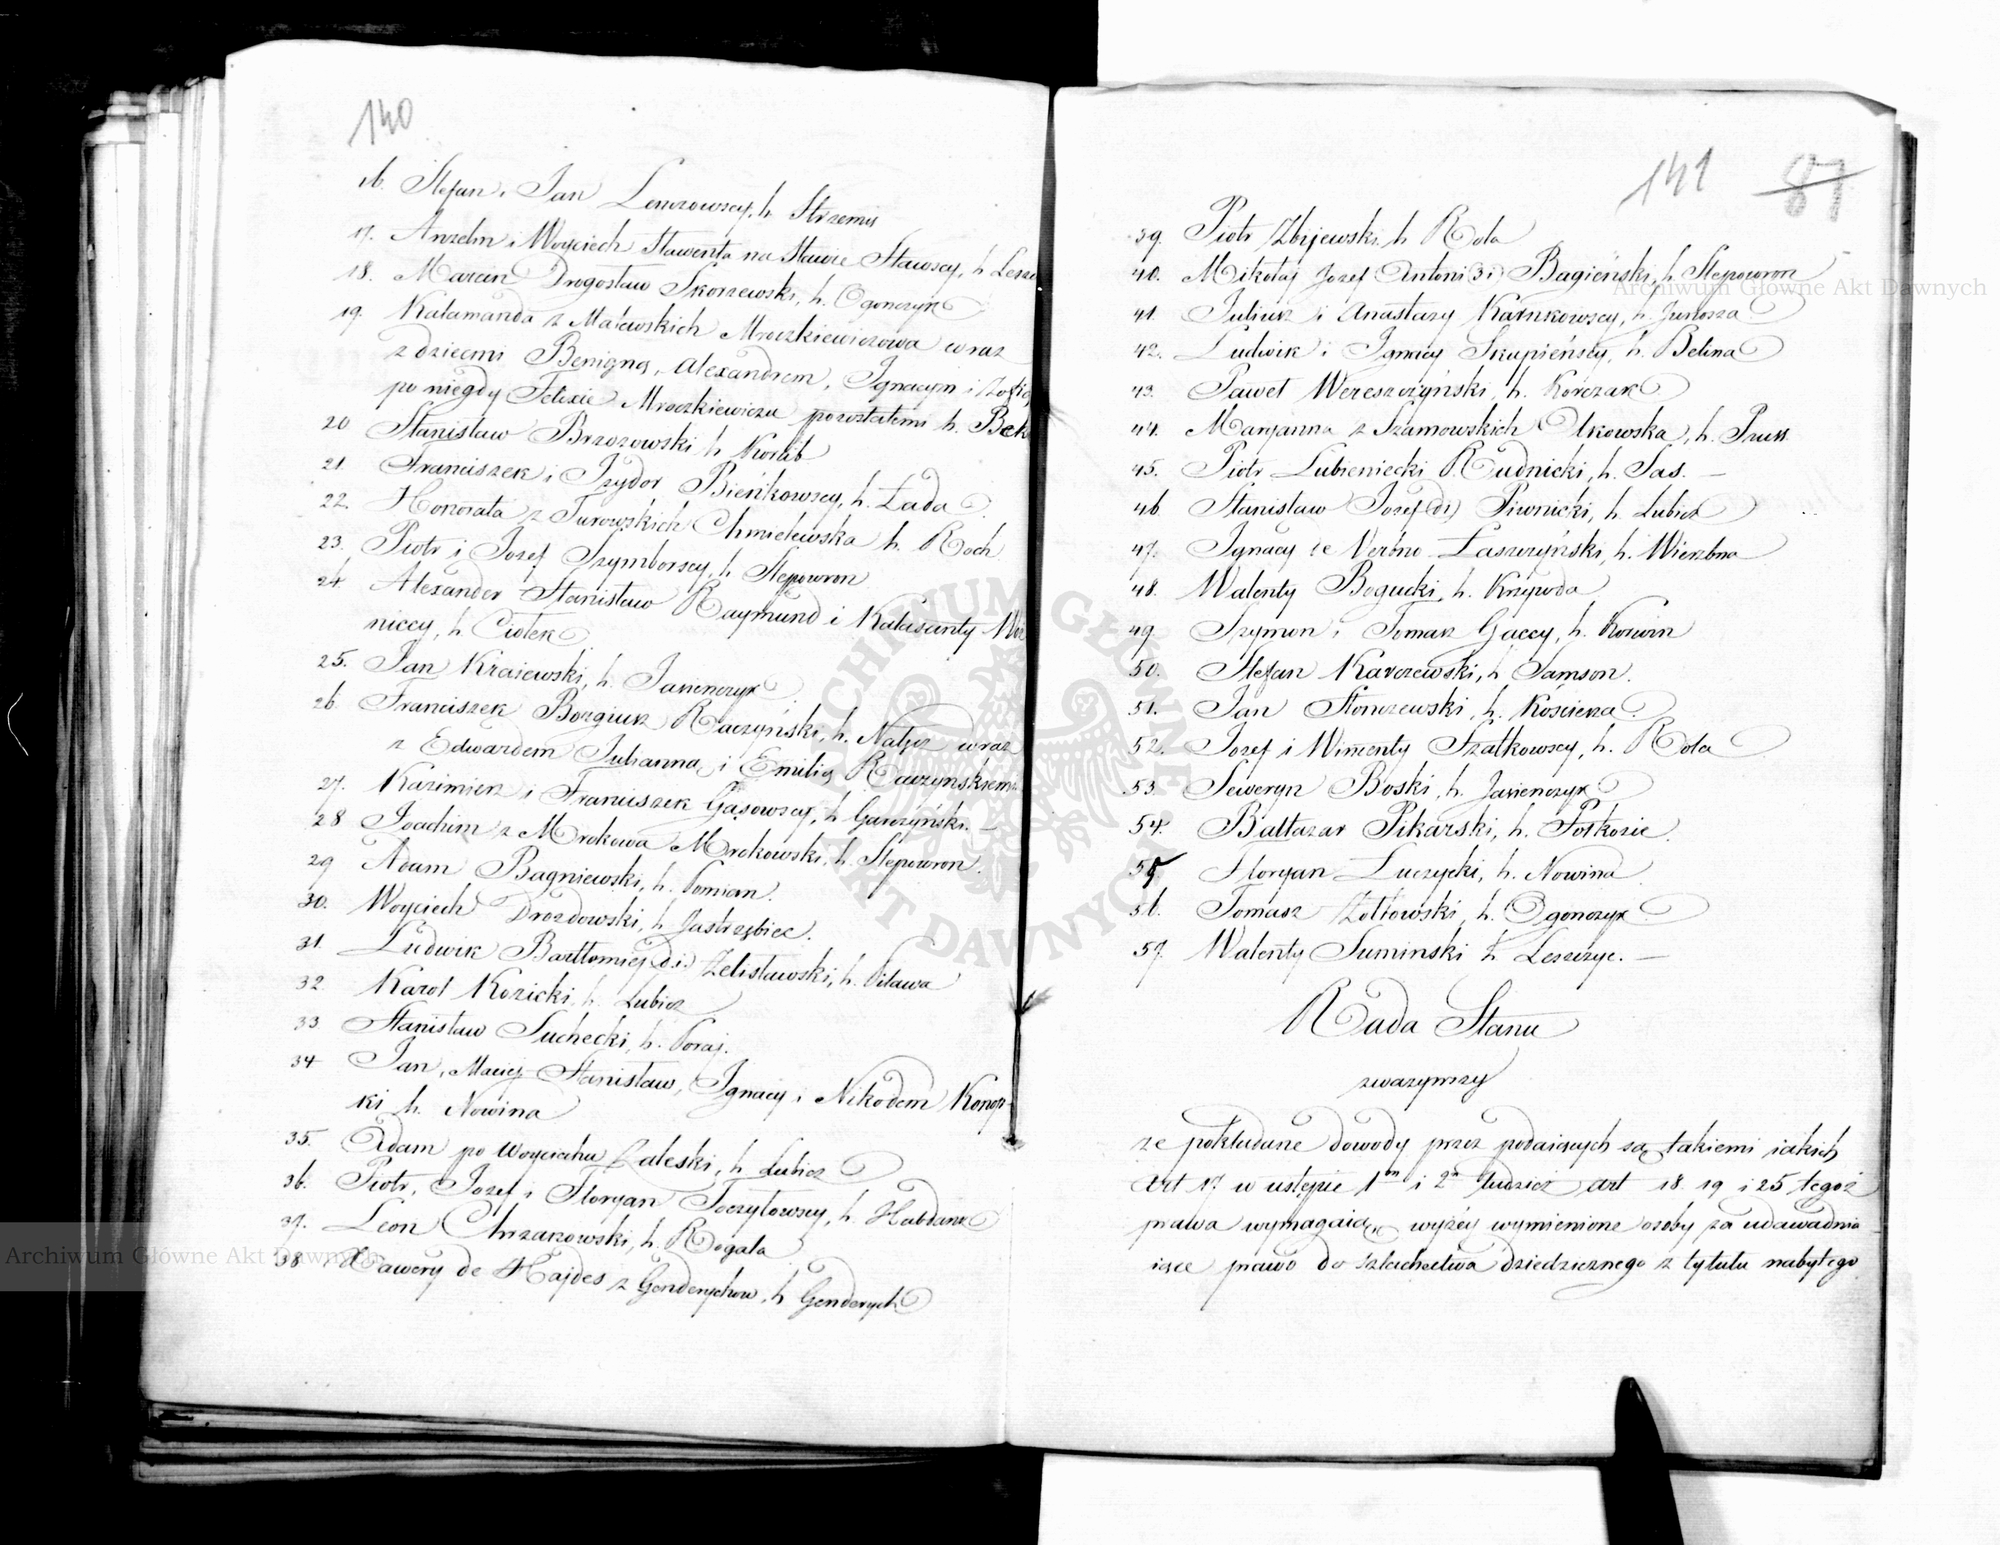 140
16. Stefan i Jan Lenczowscy, h. Strzemię
17. Anzelm i Woyciech Sławenta na Sławie Sławscy, h. Leszc
18. Marcin Drogosław Skorzewski, h. Ogonczyk
19. Kalamanda z Małewskich Mroczkiewiczowa wraz
z dziecmi Benigną, Alexandrem, Ignacym i Zofią
po niegdy Felixie Mroczkiewiczu pozostałemi h. Bek
20 Stanisław Brzozowski h. Korab
21. Franciszek i Izydor Bieńkowscy, h. Łada
22. Honorata z Turowskich Chmielewska h. Roch
23. Piotr i Jozef Szymborscy, h. Slepowron
24. Alexander Stanisław Raymund i Kalasanty
niccy, h. Ciołek
25. Jan Kraiewski, h. Jasienczyk
26. Franciszek Borgiusz Raczyński, h. Nałęcz wraz
z Edwardem Julianną i Emilią Raczynskiemi
27. Kazimierz i Franciszek Gąsowscy, h. Garczyński. —
28 Joachim z Mrokowa Mrokowski, h. Slepowron.
29 Adam Bagniewski, h. Pomian.
30. Woyciech Drozdowski, h. Jastrzębiec.
31. Ludwik Bartłomiey (d. i.) Zelisławski, h. Pilawa
32 Karol Kozicki, h. Lubicz
33. Stanisław Suchecki, h. Poraj.
34 Jan, Maciej Stanisław, Ignacy i Nikodem Konop
ki h. Nowina
35. Adam po Woyciechu Zaleski, h. Lubicz
36. Piotr, Jozef i Floryan Toczyłowscy, h. Habdank
37. Leon Chrzanowski, h. Rogala
38 Xawery de Hajdes z Genderychow, h. Genderych
141 87
39. Piotr Zbijewski, h. Rola
40. Mikołaj Jozef Antoni (3 i) Bagieński, h. Slepowron
41. Juliusz i Anastazy Karnkowscy, h. Junosza
42. Ludwik i Ignacy Skupieńscy, h. Belina
43. Paweł Wereszczyński, h. Korczak
44. Maryanna z Szamowskich Ulkowska, h. Pruss
45. Piotr Lubieniecki Rudnicki, h. Sas. —
46 Stanisław Jozef (2 i) Piwnicki, h. Lubicz
47. Ignacy ze Verbno Łaszczyński, h. Wierzbna
48. Walenty Bogucki, h. Krzywda
49. Szymon i Tomasz Gaccy, h. Korwin
50. Stefan Karczewski, h. Samson.
51. Jan Słonczewski, h. Kościesza
52. Jozef i Wincenty Szatkowscy, h. Rola
53. Seweryn Boski, h. Jasienczyk
54. Baltazar Pikarski, h. Połkozic.
55 Floryan Luczycki, h. Nowina
56. Tomasz Zołtowski, h. Ogonczyk
57. Walenty Suminski h. Leszczyc. —
Rada Stanu
zwazywszy
ze pokładane dowody przez podaiących są takiemi iakich
art 17 w ustępie 1m i 2m tudzież art 18 19 i 25 tegoż
prawa wymagaią, wyżey wymienione osoby za udawadnia
iące prawo do szlachectwa dziedzicznego z tytułu nabytego
Archiwum Główne Akt Dawnych
Archiwum Główne Akt Dawnych
ARCHIWUM GŁÓWNE AKT DAWNYCH